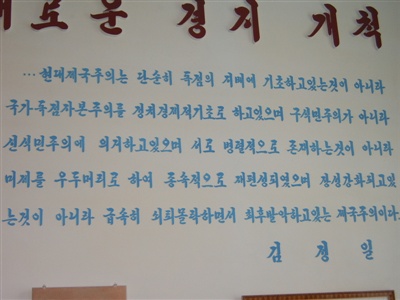 새로운 경지 개척
...현대제국주의는 단순히 독점의 지배에 기초하고있는것이 아니라
국가독점자본주의를 정치경제적기초로 하고있으며 구식민주의가 아니라
신식민주의에 의거하고있으며 서로 병렬적으로 존재하는것이 아니라
미제를 우두머리로 하여 종속적으로 재편성되였으며 장성강화되고있
는것이 아니라 급속히 쇠퇴몰락하면서 최후발악하고있는 제국주의이다.
김정일